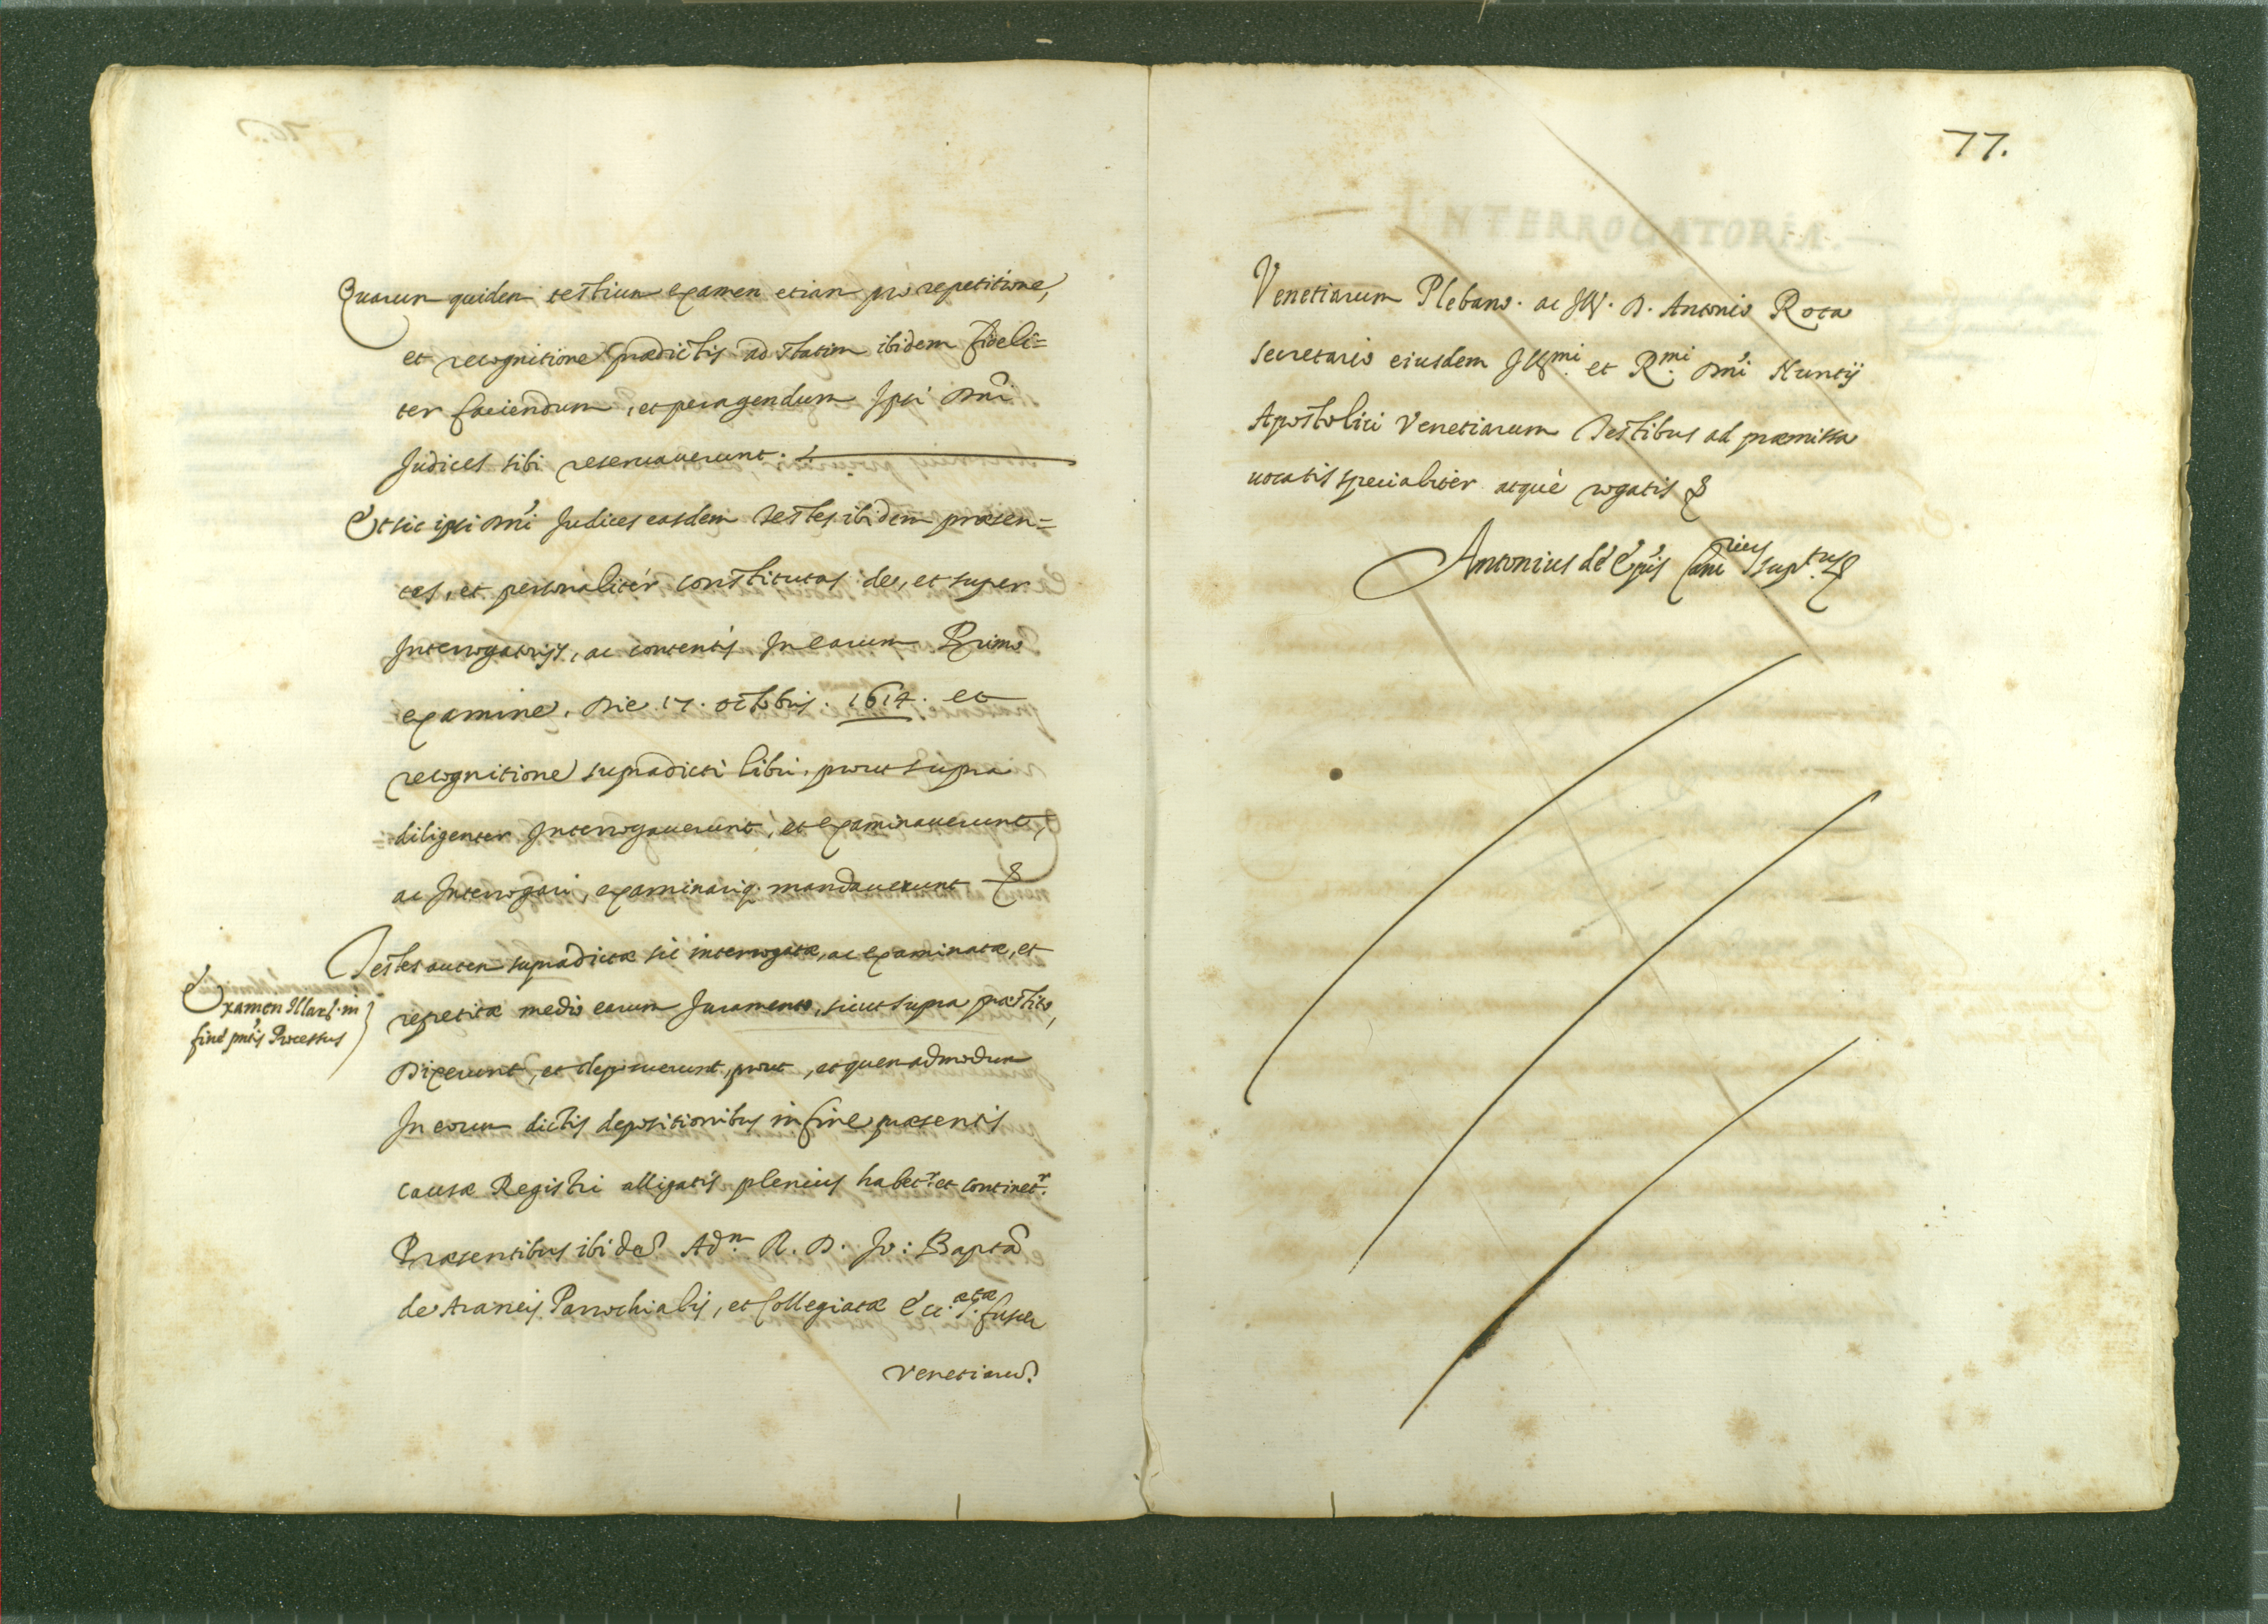 Quarum quidem testium examen etiam pro repetitione,
et recognitione prædictis ad statim ibidem fideli=
ter faciendum, et peragendum Ipsi Dñi
Judices sibi reseruauerunt.
Et sic ipsi Dñi Judices easdem testes ibidem præsen=
tes, et personalitér constitutas de, et super
Interrogatorijs, ac contentis In earum Primo
examine, Die 17. octobris. 1614. et
recognitione supradicti libri, prout supra
diligenter Interrogauerunt, et examinauerunt,
ac Interrogari, examinariq. mandauerunt &
Testes autem supradictæ sic interrogatæ, ac examinatæ, et
Examen Illarū in
fine pñtis Processus
repetitæ medio earum Juramento, sicut supra præstito,
Dixerunt, et deposuerunt, prout, et quemadmodum
In eorum dictis depositionibus in fine præsentis
causæ Registri alligatis plenius habet.r et continet.r
Præsentibus ibidē Ad.m R. D. Jo: Bapta
de Araneis Parrochialis, et Collegiatæ Ecc.
Venetiarū
77.
INTERROGATORIA.
Venetiarum Plebano. ac Ill. D. Antonio Rota
secretario eiusdem Ill.mi et R.mi Dñi Nuntij
Apostolici Venetiarum Testibus ad præmissa
uocatis specialitér atquè rogatis &
Antonius de Ep̃is